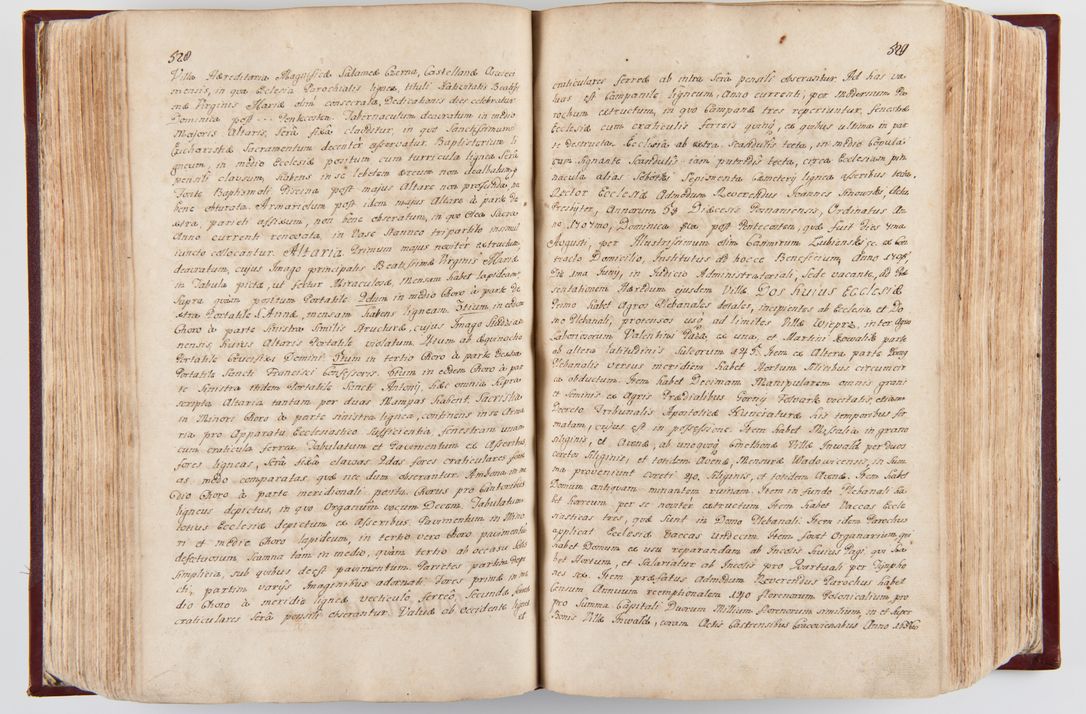 528
Villa Hæreditaria Magnificæ Salomeæ Czerna, Castellanæ Oswiecimensis,
in qua Ecclesia Parochialis lignea, tituli Nativitatis Beatissimæ
Virginis Mariæ olim consecrata, Dedicationis dies celebratur
Dominica post --- Pentecosten. Tabernaculum deauratum in medio
Majoris Altaris, Serâ fixâ clauditur, in quo Sanctissimum
Eucharistiæ Sacramentum decenter asservatur. Baptisterium li
gneum, in medio Ecclesiæ positum cum turricula lignea Serâ
pensili clausum, habens in se lebetem æreum non dealbatum,
Fonte Baptismali Piscina post majus Altare non profunda, ne
bene obturata. Armariolum post idem majus Altare à parte de
xtra, parieti affixum, non bene obseratum, in quo Olea Sacra
Anno currenti renovata, in Vase Stanneo tripartito insimul
iuncto collocantur. Altaria Primum majus noviter extructum,
deauratum, cujus Imago principalis Beatissimæ Virginis Mariæ
in Tabula picta, ut fertur Miraculosa, Mensam habet lapideam,
Supra quam positum Portatile. 2dum in medio Choro à parte de
xtra Portatile S. Annæ, mensam habens ligneam. 3tium in eodem
Choro à parte sinistra similis structuræ, cujus Imago
nensis, hujus Altaris Portatile violatum. 4tum ab æquinoctio
Portatile Crucifixi Domini. 5tum in tertio Choro à parte dextra
Portatile Sancti Francisci Confessoris. 6tum in eodem Choro à par
te Sinistra itidem Portatile Sancti Antonij, hæc omnia supra
scripta Altaria tantum per duas Mappas habent. Sacristia
in Minori Choro à parte sinistra lignea, continens in se Arma
ria pro Apparatu Ecclesiastico sufficientia, fenestram unam
cum craticula ferrea. Tabulatum et Pavimentum ex Asseribus,
fores ligneas, Serâ fixâ clausas. 2das fores craticulares
as modo comparatas, quæ nec dum obserantur. Ambona in me
dio Choro à parte meridionali posita, Chorus pro Cantoribus
ligneus depictus, in quo Organum vocum Decem. Tabulatum
totius Ecclesiæ depictum ex Asseribus. Pavimentum in Mino
ri et medio Choro lapideum, in tertio vero Choro pavimentum
defectuosum. Scamna tam in medio, quàm tertio ab occasu Solis
simplicia, sub quibus deest pavimentum. Parietes partim depi
cti, partim varijs Imaginibus adornati. Fores primæ in me
dio Choro à meridie ligneæ vecticulo ferreo, Secundæ
craticulares Serâ pensili obserantur. Valvæ ab Occidente ligneæ
et
529
craticulares ferreæ ab intra Serâ pensili obserantur. Ad has va
lvas est Campanile ligneum, Anno currenti, per Modernum Pa
rochum extructum, in quo Campanæ tres reperiuntur, fenestræ
Ecclesiæ cum craticulis ferreis quinq, ex quibus ultima in par
te destructa. Ecclesia ab extra Scandulis tecta, in medio Copula
cum signante Scandulis iam putridis tecta, circa Ecclesiam pin
nacula alias Soboth Segmenta Cæmeterij lignea asseribus tecta.
Rector Ecclesiæ Admodum Reverendus Joannes
Presbyter, Annorum 53 Diæcesis Posnaniensis, Ordinatus An
no 1707mo, Dominica 8va post Pentecosten, quæ fuit Dies 7ma
Augusti, per Illustrissimum olim Casimirum Lubienski, ex
tracto Domicilio, Institutus ad hocce Beneficium, Anno
Die 1ma Junij, in Judicio Administratoriali, Sede vacante, ad Præ
sentationem Hæredum ejusdem Villæ Dos hujus Ecclesiæ
Primo habet Agros Plebanales dotales, incipientes ab Ecclesia et Do
mo Plebanali, protensos usq ad limites Villæ Wieprz, inter Agros
Laboriosorum Valentini ex una, et Martini Kowalik parte
ab altera latitudinis Sulcorum 147. Item ex Altera parte Domus
Plebanalis versus meridiem habet Hortum Silvibus circumcir
ca obductum. Item habet Decimam Manipularem omnis grani
et Seminis ex Agris Prædialibus Gorny Folwark vocitatis, etiam
Decreto Tribunalis Apostolicæ Nunciaturæ his temporibus fir
matam, cujus est in possessione. Item habet Missalia in grano
siliginis, et Avenæ, ab unoquoq Cmethone Villæ Inwald per duos
coretos Siliginis, et totidem Avenæ, Mensuræ Wadowicensis, in Sum
ma proveniunt coreti 40, Siliginis, et totidem Avenæ. Item habet
Domum antiquam minantem ruinam. Item in fundo Plebanali ha
bet horreum per se noviter extructum. Item habet Vaccas Eccle
siasticas tres, quæ sunt in Domo Plebanali. Item idem Parochus
applicat Ecclesiæ Vaccas Undecim. Item fovet Organarium qui
habet Domum ex usu reparandam ab Incolis hujus Pagi, qui ha
bet Hortum, et Salariatur ab Incolis pro Quartuali per Tympho
nes sex. Item præfatus Admodum Reverendus Parochus habet
Censum Annuum reemptionalem 140 florenorum Polonicalium, pro
pro Summa Capitali Duorum Millium florenorum similium, in et super
Bonis Villæ Inwald, coram Actis Castrensibus Cracoviensibus Anno